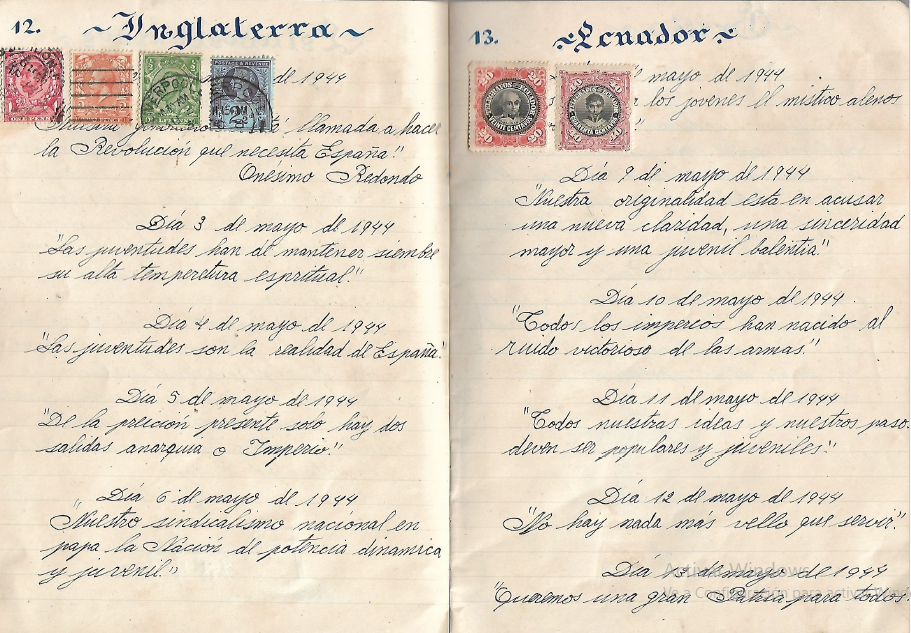 12. ~Inglaterra~
de 1944
llamada a hacer
la Revolución que necesita España."
Onésimo Redondo
Día 3 de mayo de 1944
"Las juventudes han de mantener siembre
su alta temperctura espritual."
Día 4 de mayo de 1944
"Las juventudes son la realidad de España."
Día 5 de mayo de 1944
"De la preición presente solo hay dos
salidas anarquia o Imperio."
Día 6 de mayo de 1944
"Nuestro sindicalismo nacional en
papa la Nación de potencia dinamica
y juvenil."
13. ~Ecuador~
mayo de 1944
r los jovenes el mistico alenos
Día 9 de mayo de 1944
"Nuestra originalidad está en acusar
una nueva claridad, una sinceridad
mayor y una juvenil balentia."
Día 10 de mayo de 1944
"Todos los imperios han nacido al
ruido victorioso de las armas."
Día 11 de mayo de 1944
"Todos nuestras ideas y nuestros paso
deven ser populares y juveniles."
Día 12 de mayo de 1944
"No hay nada más vello que servir."
Día 13 de mayo de 1944
"Queremos una gran Patria para todos."